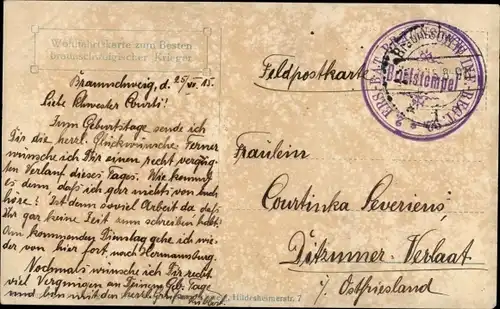 Wohlfahrtskarte zum Besten
braunschweigischer Krieger
Braunschweig, d. 25/VI. 15.
Liebe Schwester Courti!
Zum Geburtstage sende ich
Dir die herzl. Glückwünsche. Ferner
wünsche ich Dir einen recht vergnüg-
ten Verlauf dieses Tages. Wie kommt
es denn, daß ich gar nichts von Euch
höre? Ist denn soviel Arbeit da daß
Ihr gar keine Zeit zum schreiben habt!
Am kommenden Dienstag gehe ich wie-
der von hier fort, nach Hermannsburg.
Nochmals wünsche ich Dir recht
viel Vergnügen an Deinem Geb. Tage
und bin mit den herzl. Grüßen
Hildesheimerstr. 7
Feldpostkarte
Briefstempel
Fräulein
Courtinka Severiens,
Ditzumer-Verlaat
i/ Ostfriesland